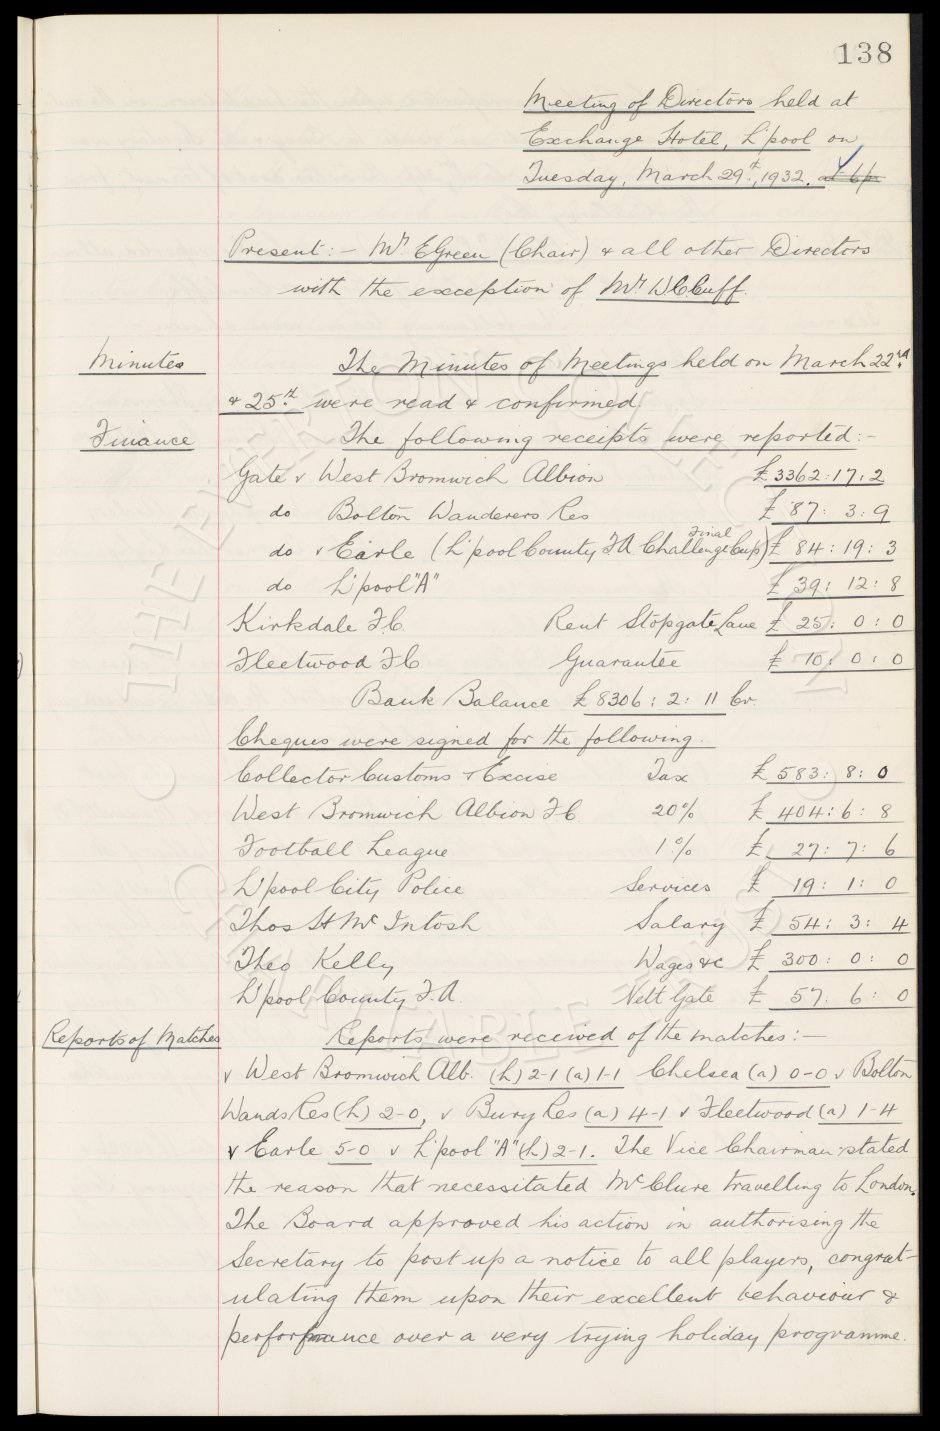 138
Meeting of Directors held at
Exchange Hotel, L'pool on
Tuesday, March 29th, 1932. at 6p
Present:- Mr. E Green (Chair) & all other Directors
with the exception of Mr. W C Cuff.
Minutes
The Minutes of Meetings held on March 22nd
& 25th were read & confirmed.
Finance
The following receipts were reported:-
Gate v West Bromwich Albion £3362:17:2
do Bolton Wanderers Res £ 87: 3: 9
do v Earle (L'pool County F.A. Challenge Final Cup) £ 84: 19: 3
do L'pool "A" £ 39: 12: 8
Kirkdale F.C. Rent Stopgate Lane £ 25: 0: 0
Fleetwood F.C Guarantee £ 10: 0: 0
Bank Balance £8306: 2: 11 Cr.
Cheques were signed for the following.
Collector Customs & Excise Tax £ 583: 8: 0
West Bromwich Albion F.C. 20% £ 404: 6: 8
Football League 1% £ 27: 7: 6
L'pool City Police Services £ 19: 1: 0
Thos H McIntosh Salary £ 54: 3: 4
Theo Kelly Wages &c £ 300: 0: 0
L'pool County F.A. Nett Gate £ 57: 6: 0
Reports of Matches
Reports were received of the matches:-
v West Bromwich Alb. (h) 2-1 (a) 1-1 Chelsea (a) 0-0 v Bolton
Wands Res (h) 2-0, v Bury Res (a) 4-1 v Fleetwood (a) 1-4
v Earle 5-0 v L'pool "A" (h) 2-1. The Vice Chairman stated
the reason that necessitated McClure travelling to London.
The Board approved his action in authorising the
Secretary to post up a notice to all players, congrat-
ulating them upon their excellent behaviour &
performance over a very trying holiday programme.